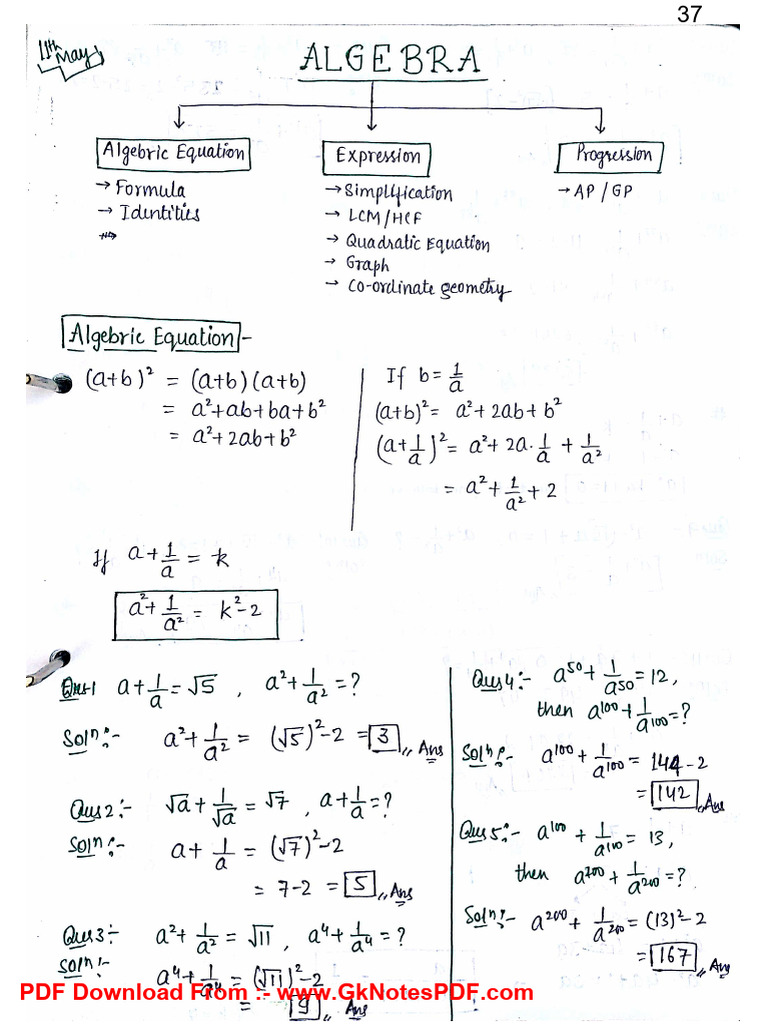 37
11th May
ALGEBRA
Algebric Equation
→ Formula
→ Identities
Expression
→ Simplification
→ LCM/HCF
→ Quadratic Equation
→ Graph
→ Co-ordinate geometry
Progression
→ AP / GP
Algebric Equation -
(a+b)² = (a+b)(a+b)
= a²+ab+ba+b²
= a²+2ab+b²
If b = 1/a
(a+b)² = a²+2ab+b²
(a+1/a)² = a²+2a·1/a + 1/a²
= a²+1/a²+2
If a+1/a = k
a²+1/a² = k²-2
Ques1 a+1/a = √5 , a²+1/a² = ?
Solⁿ:- a²+1/a² = (√5)²-2 = 3 ,, Ans
Ques2:- √a+1/√a = √7 , a+1/a = ?
Solⁿ:- a+1/a = (√7)²-2
= 7-2 = 5 ,, Ans
Ques3:- a²+1/a² = √11 , a⁴+1/a⁴ = ?
Solⁿ:- a⁴+1/a⁴ = (√11)²-2
= 9 ,, Ans
Ques4:- a⁵⁰+1/a⁵⁰ = 12,
then a¹⁰⁰+1/a¹⁰⁰ = ?
Solⁿ:- a¹⁰⁰+1/a¹⁰⁰ = 144-2
= 142 ,, Ans
Ques5:- a¹⁰⁰+1/a¹⁰⁰ = 13,
then a²⁰⁰+1/a²⁰⁰ = ?
Solⁿ:- a²⁰⁰+1/a²⁰⁰ = (13)²-2
= 167 ,, Ans
PDF Download From :- www.GkNotesPDF.com